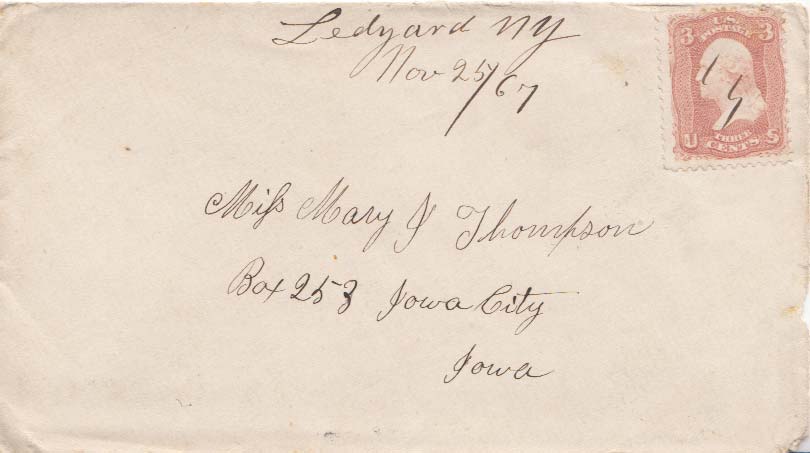 Ledyard NY
Nov 25/67
3 U.S. POSTAGE 3
THREE
U CENTS S
Miss Mary J Thompson
Box 253 Iowa City
Iowa